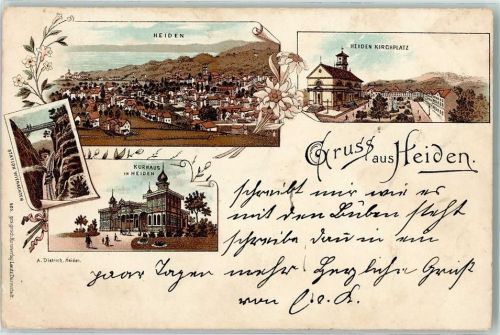 HEIDEN
HEIDEN KIRCHPLATZ
KURHAUS
IN HEIDEN
A. Dietrich, Heiden.
Gruss aus Heiden.
schreibt mir wie es
mit den Buben steht
schreibe dan in ein
paar Tagen mehr Herzliche Grüße
von